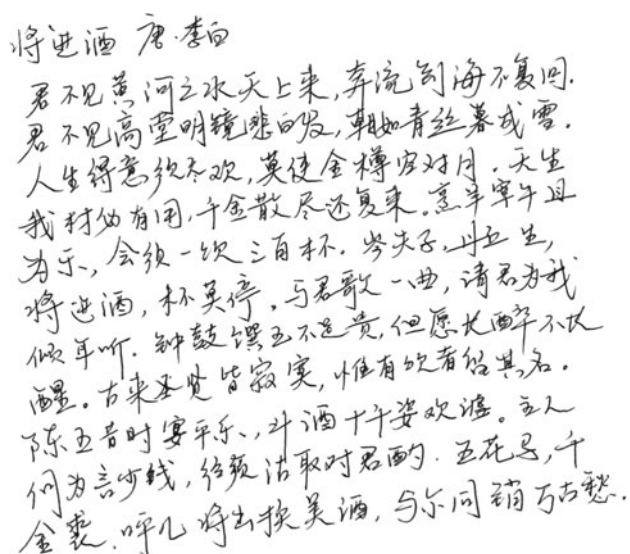 将进酒 唐·李白
君不见黄河之水天上来,奔流到海不复回.
君不见高堂明镜悲白发,朝如青丝暮成雪.
人生得意须尽欢,莫使金樽空对月.天生
我材必有用,千金散尽还复来.烹羊宰牛且
为乐,会须一饮三百杯.岑夫子,丹丘生,
将进酒,杯莫停.与君歌一曲,请君为我
倾耳听.钟鼓馔玉不足贵,但愿长醉不长
醒。古来圣贤皆寂寞,惟有饮者留其名.
陈王昔时宴平乐,斗酒十千恣欢谑。主人
何为言少钱,径须沽取对君酌.五花马,千
金裘.呼儿将出换美酒,与尔同销万古愁.